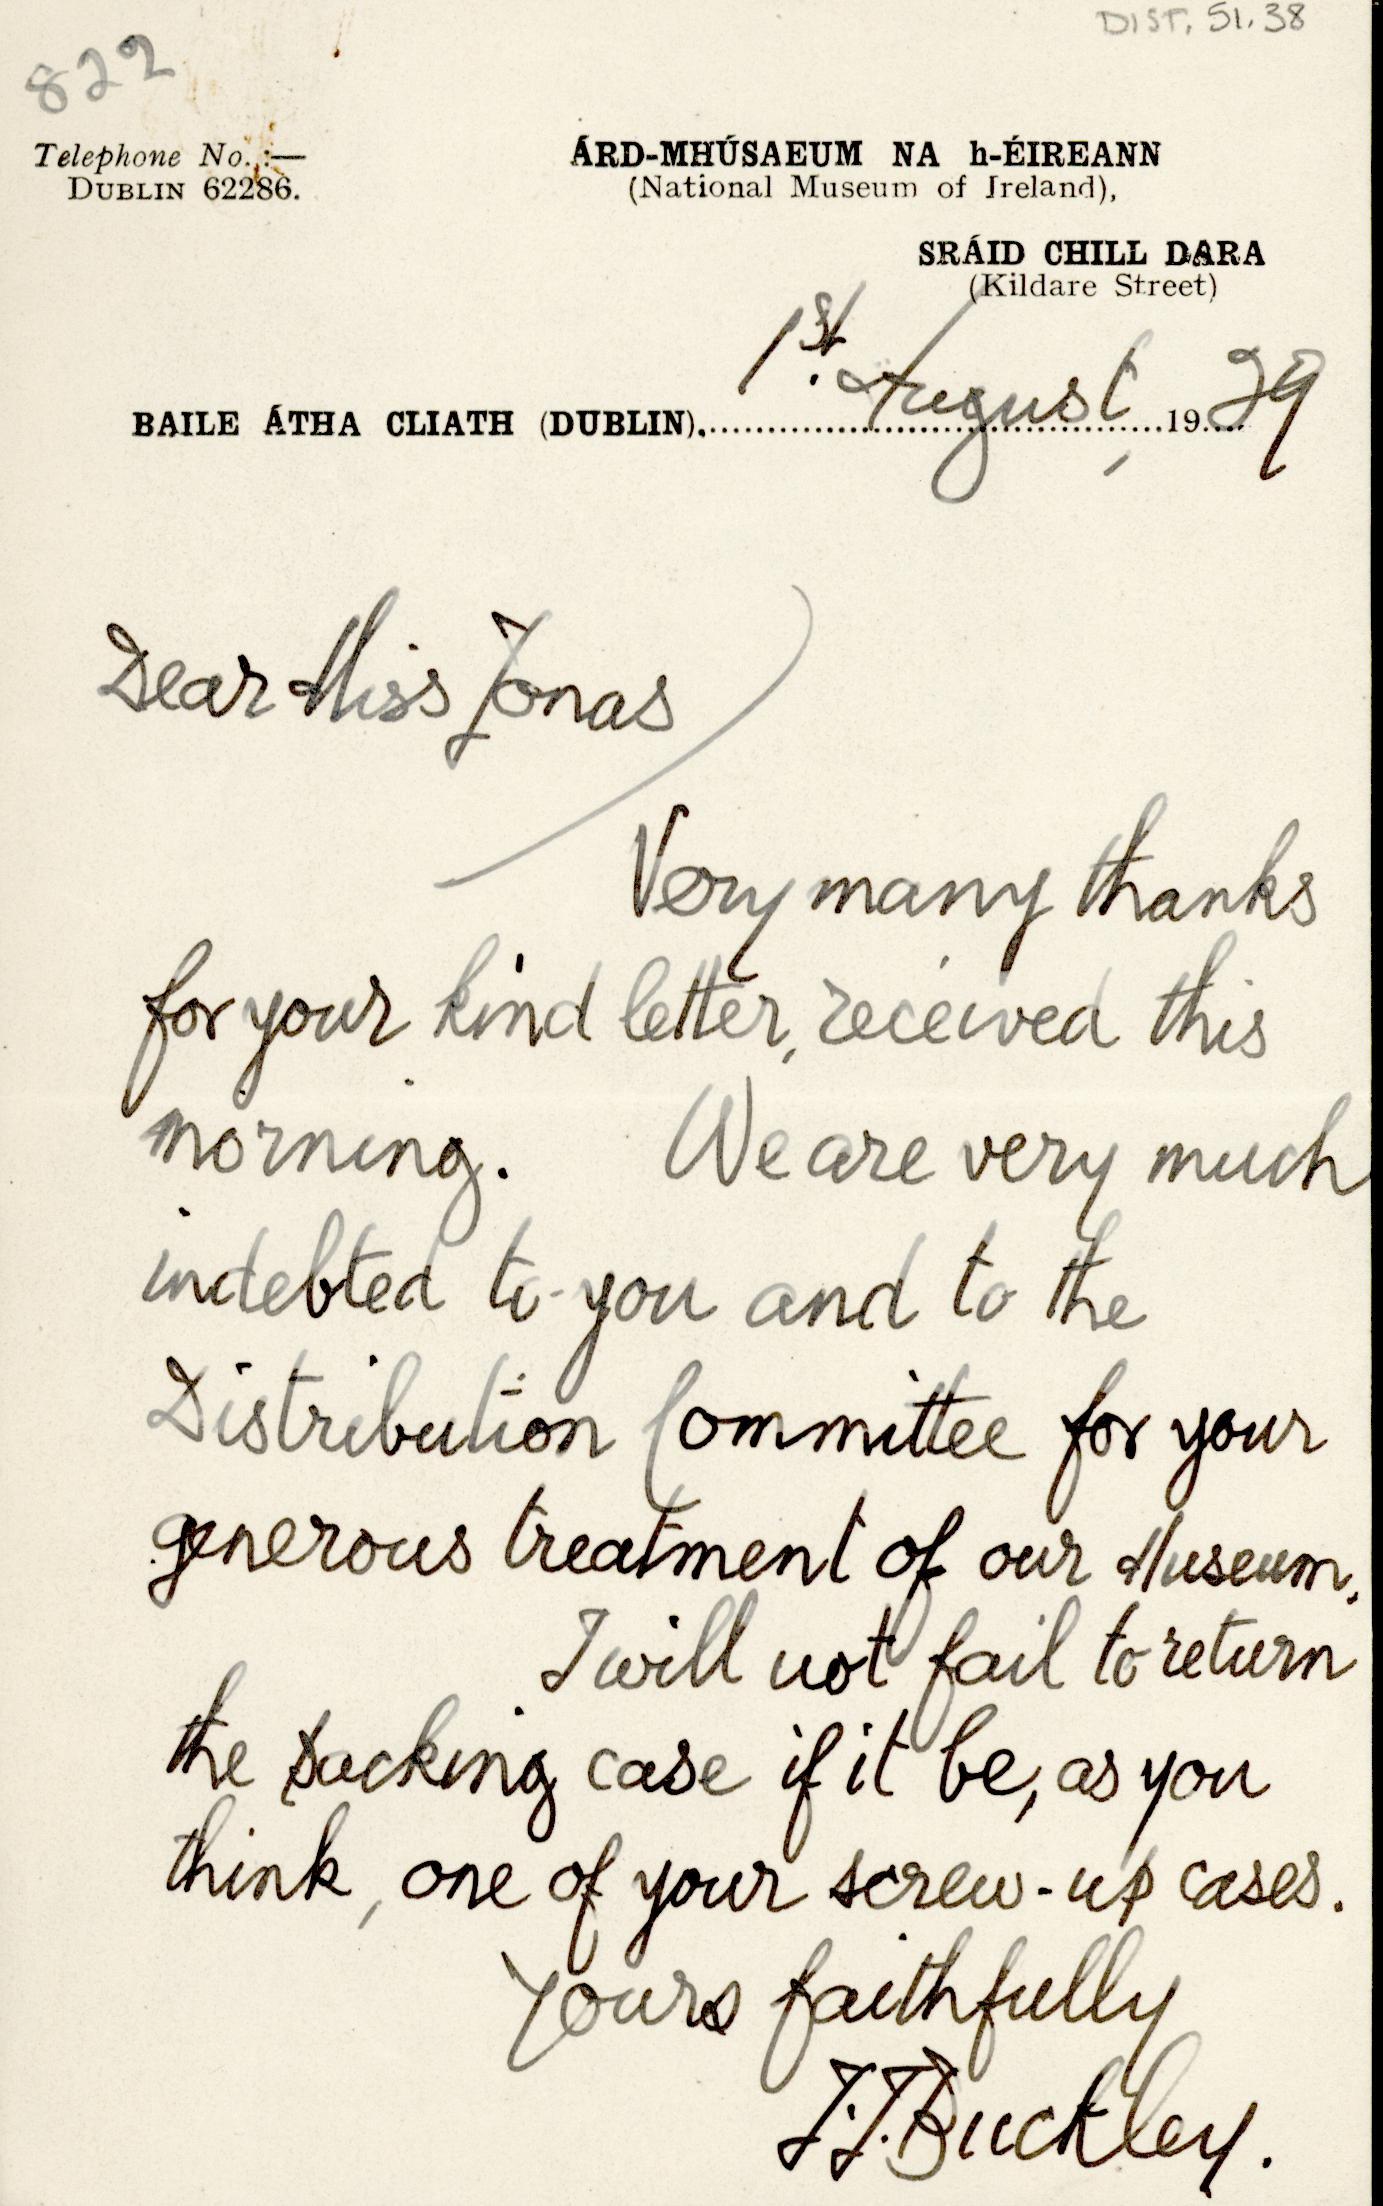 DIST. 51.38
822
Telephone No. :—
DUBLIN 62286.
ÁRD-MHÚSAEUM NA h-ÉIREANN
(National Museum of Ireland),
SRÁID CHILL DARA
(Kildare Street)
BAILE ÁTHA CLIATH (DUBLIN). 1st. August, 1929
Dear Miss Jonas
Very many thanks
for your kind letter, received this
morning. We are very much
indebted to you and to the
Distribution Committee for your
generous treatment of our Museum.
I will not fail to return
the packing case if it be, as you
think, one of your screw-up cases.
Yours faithfully
J.J. Buckley.